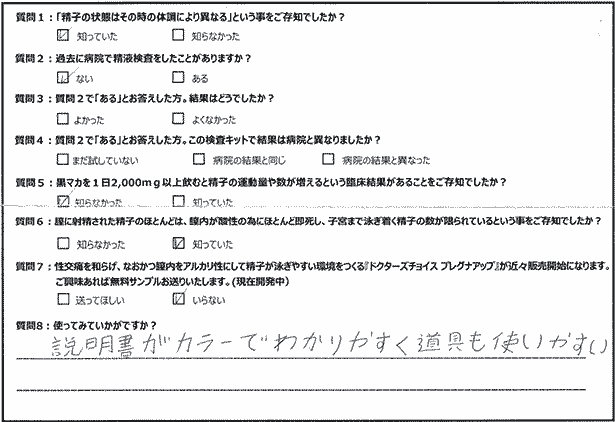 質問1：「精子の状態はその時の体調により異なる」という事をご存知でしたか？
☑ 知っていた □ 知らなかった
質問2：過去に病院で精液検査をしたことがありますか？
☑ ない □ ある
質問3：質問2で「ある」とお答えした方。結果はどうでしたか？
□ よかった □ よくなかった
質問4：質問2で「ある」とお答えした方。この検査キットで結果は病院と異なりましたか？
□ まだ試していない □ 病院の結果と同じ □ 病院の結果と異なった
質問5：黒マカを1日2,000mg以上飲むと精子の運動量や数が増えるという臨床結果があることをご存知でしたか？
☑ 知らなかった □ 知っていた
質問6：膣に射精された精子のほとんどは、膣内が酸性の為にほとんど即死し、子宮まで泳ぎ着く精子の数が限られているという事をご存知でしたか？
□ 知らなかった ☑ 知っていた
質問7：性交痛を和らげ、なおかつ膣内をアルカリ性にして精子が泳ぎやすい環境をつくる『ドクターズチョイス プレグナアップ』が近々販売開始になります。
ご興味あれば無料サンプルお送りいたします。（現在開発中）
□ 送ってほしい ☑ いらない
質問8：使ってみていかがですか？
説明書がカラーでわかりやすく道具も使いやすい